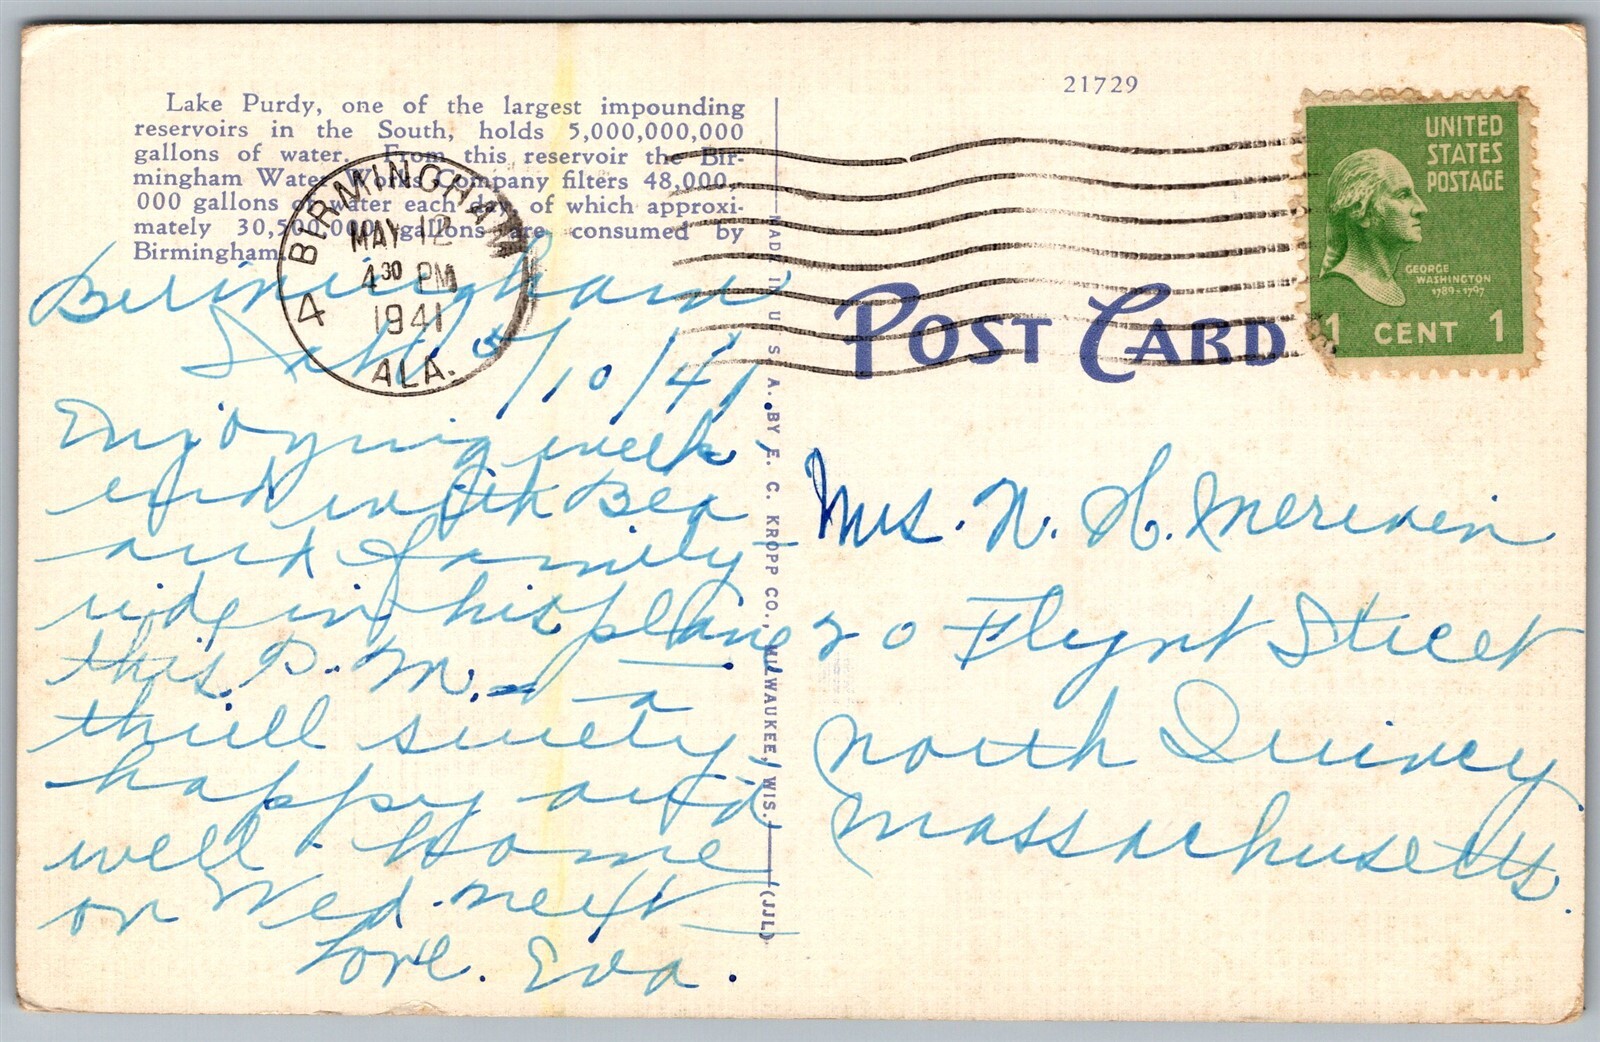 21729
Lake Purdy, one of the largest impounding
reservoirs in the South, holds 5,000,000,000
gallons of water. From this reservoir the Bir-
mingham Water Works Company filters 48,000,-
000 gallons of water each day, of which approxi-
mately 30,500,000 gallons are consumed by
Birmingham.
BIRMINGHAM
MAY 12
4 30 PM
1941
ALA.
4
UNITED
STATES
POSTAGE
GEORGE
WASHINGTON
1789-1797
1 CENT 1
POST CARD
MADE IN U. S. A. BY E. C. KROPP CO., MILWAUKEE, WIS.
(JJL)
Birmingham
Sat. 5/10/41.
Enjoying week
end with Bea
and family -
ride in his plane
this P. M. - a
thrill surely,
happy and
well. Home
on Wed. next
Love. Eva.
Mrs. N. H.
20 Flynt Street
North Quincy
Massachusetts.